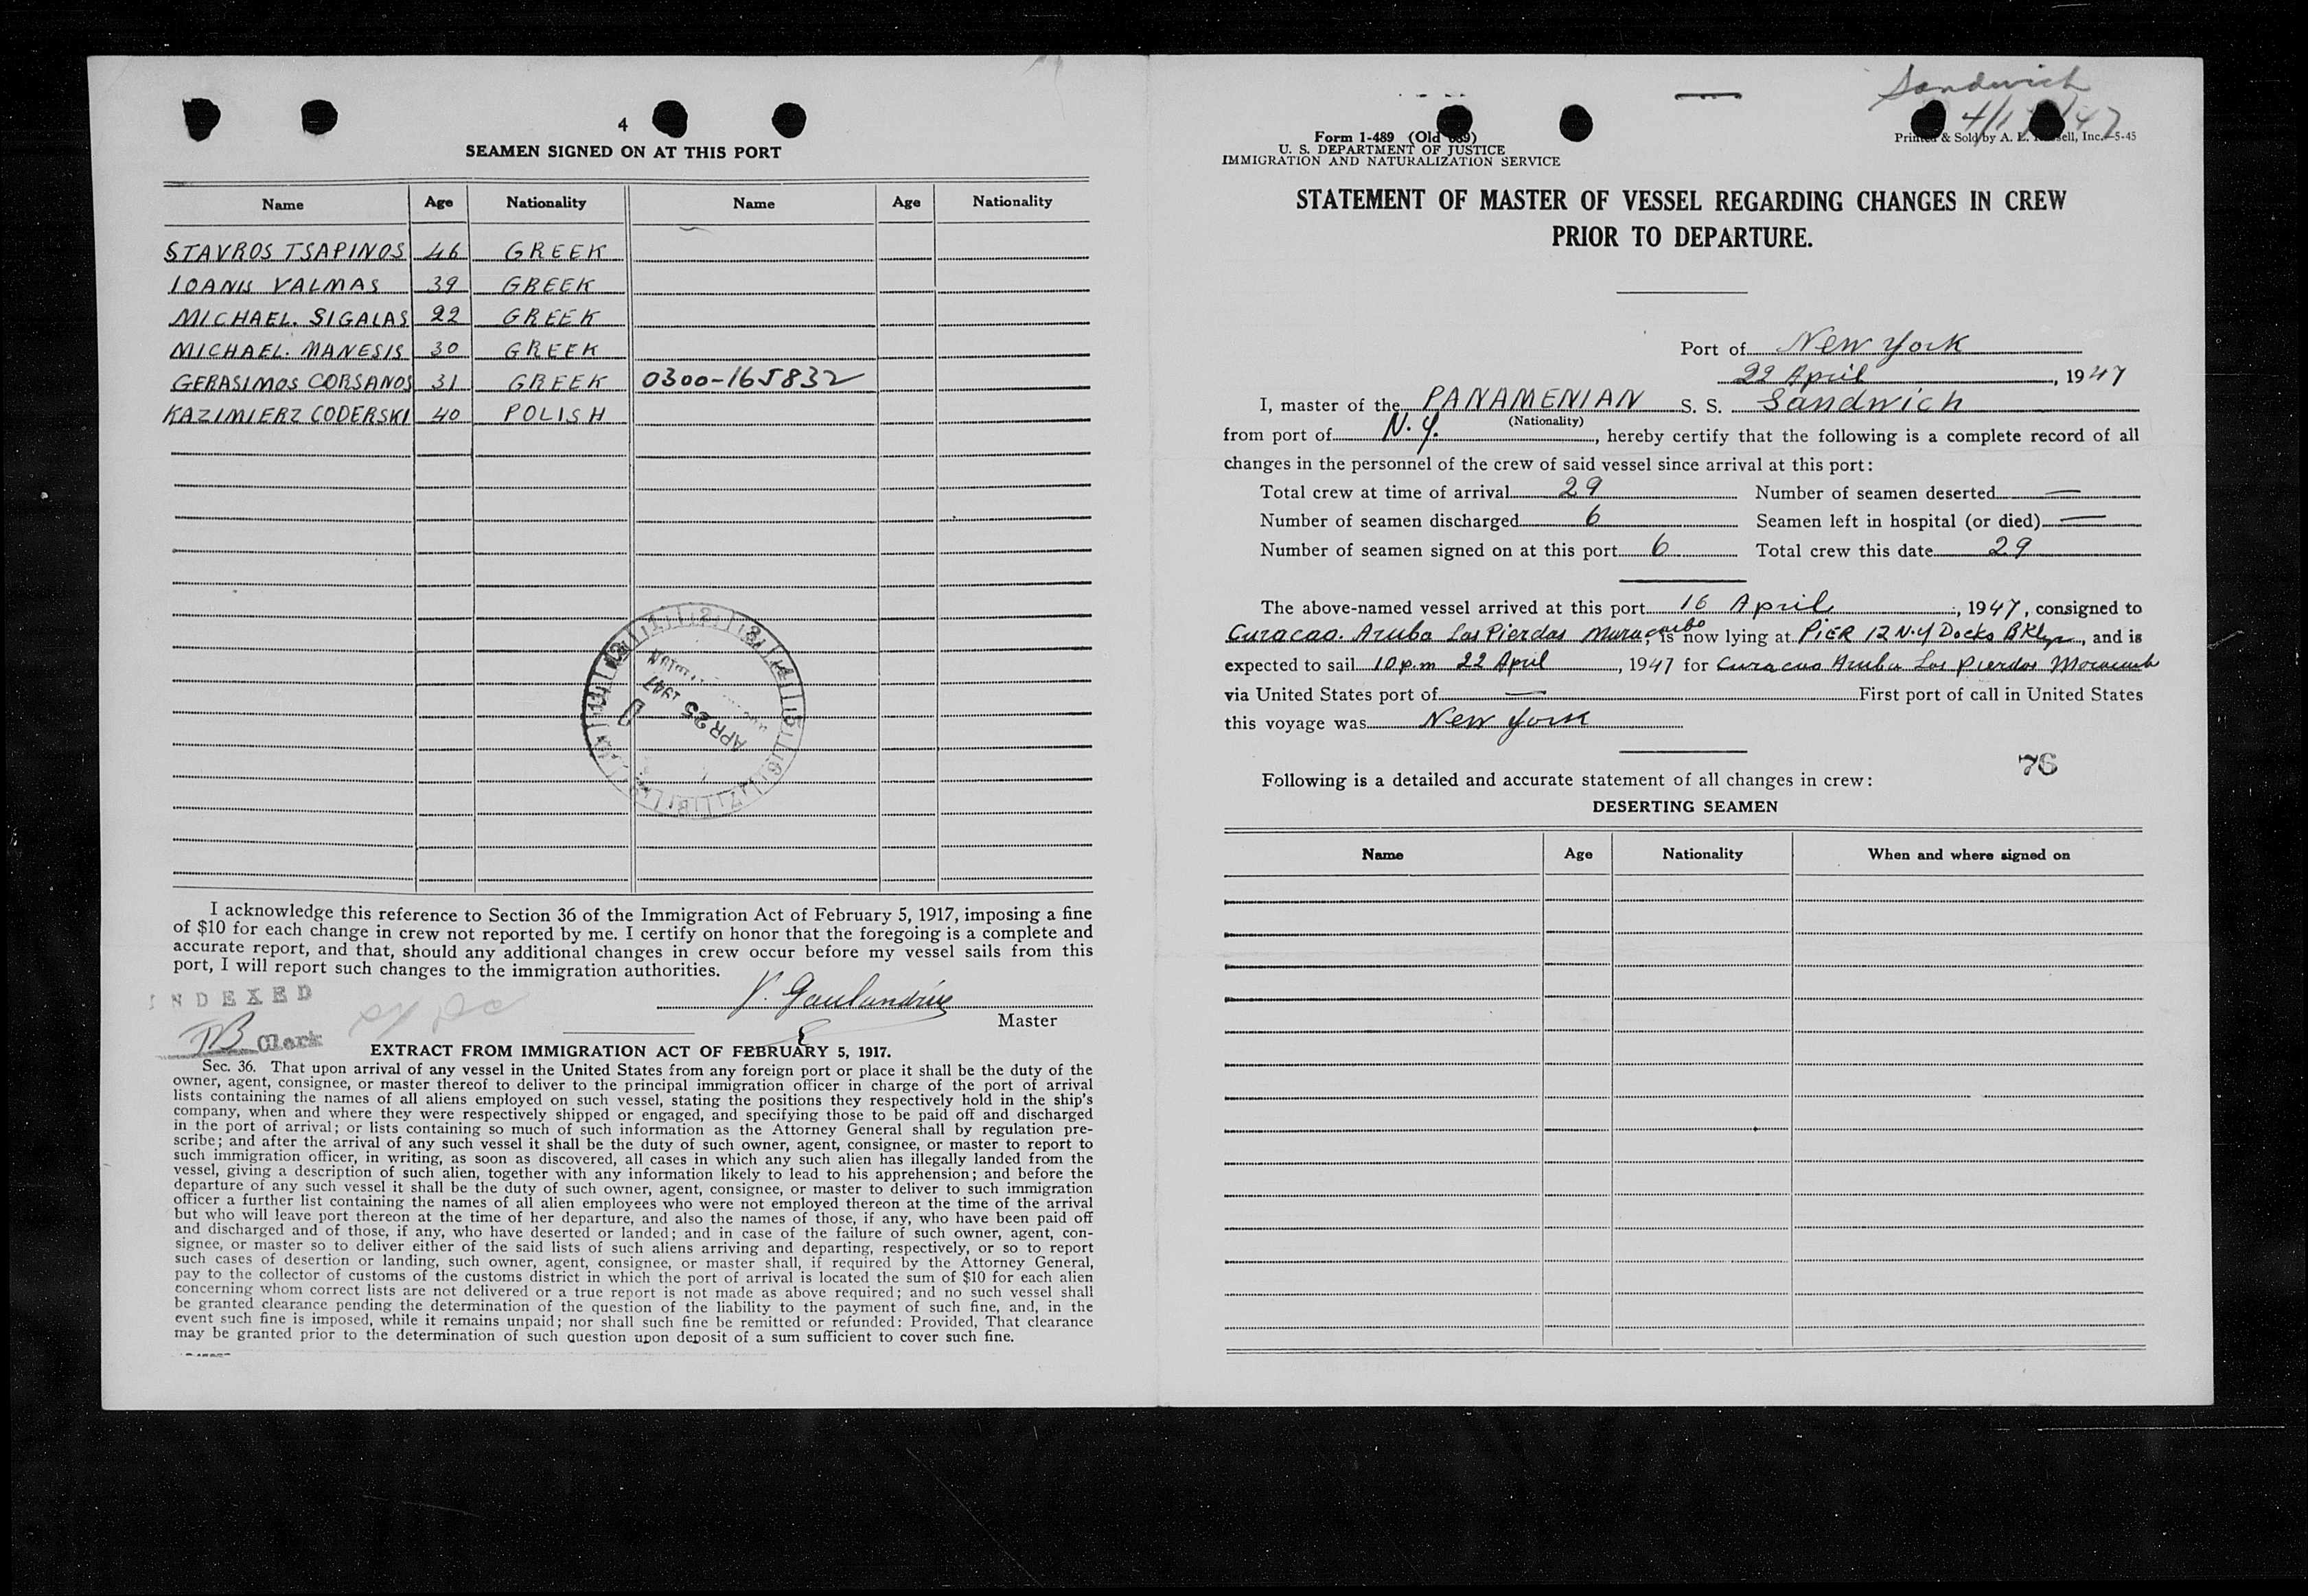 4
SEAMEN SIGNED ON AT THIS PORT
Name Age Nationality Name Age Nationality
STAVROS TSAPINOS 46 GREEK
IOANIS VALMAS 39 GREEK
MICHAEL. SIGALAS 22 GREEK
MICHAEL. MANESIS 30 GREEK
GERASIMOS CORSANOS 31 GREEK 0300-165832
KAZIMIERZ CODERSKI 40 POLISH
APR 25 1947
I acknowledge this reference to Section 36 of the Immigration Act of February 5, 1917, imposing a fine
of $10 for each change in crew not reported by me. I certify on honor that the foregoing is a complete and
accurate report, and that, should any additional changes in crew occur before my vessel sails from this
port, I will report such changes to the immigration authorities.
INDEXED
V. Goulandris
Master
Clerk
EXTRACT FROM IMMIGRATION ACT OF FEBRUARY 5, 1917.
Sec. 36. That upon arrival of any vessel in the United States from any foreign port or place it shall be the duty of the
owner, agent, consignee, or master thereof to deliver to the principal immigration officer in charge of the port of arrival
lists containing the names of all aliens employed on such vessel, stating the positions they respectively hold in the ship's
company, when and where they were respectively shipped or engaged, and specifying those to be paid off and discharged
in the port of arrival; or lists containing so much of such information as the Attorney General shall by regulation pre-
scribe; and after the arrival of any such vessel it shall be the duty of such owner, agent, consignee, or master to report to
such immigration officer, in writing, as soon as discovered, all cases in which any such alien has illegally landed from the
vessel, giving a description of such alien, together with any information likely to lead to his apprehension; and before the
departure of any such vessel it shall be the duty of such owner, agent, consignee, or master to deliver to such immigration
officer a further list containing the names of all alien employees who were not employed thereon at the time of the arrival
but who will leave port thereon at the time of her departure, and also the names of those, if any, who have been paid off
and discharged and of those, if any, who have deserted or landed; and in case of the failure of such owner, agent, con-
signee, or master so to deliver either of the said lists of such aliens arriving and departing, respectively, or so to report
such cases of desertion or landing, such owner, agent, consignee, or master shall, if required by the Attorney General,
pay to the collector of customs of the customs district in which the port of arrival is located the sum of $10 for each alien
concerning whom correct lists are not delivered or a true report is not made as above required; and no such vessel shall
be granted clearance pending the determination of the question of the liability to the payment of such fine, and, in the
event such fine is imposed, while it remains unpaid; nor shall such fine be remitted or refunded: Provided, That clearance
may be granted prior to the determination of such question upon deposit of a sum sufficient to cover such fine.
Sandwich
Form 1-489 (Old 689)
U. S. DEPARTMENT OF JUSTICE
IMMIGRATION AND NATURALIZATION SERVICE
Printed & Sold by A. E. Inc.—5-45
STATEMENT OF MASTER OF VESSEL REGARDING CHANGES IN CREW
PRIOR TO DEPARTURE.
Port of New York
22 April, 1947
I, master of the PANAMENIAN S. S. Sandwich
(Nationality)
from port of N.Y., hereby certify that the following is a complete record of all
changes in the personnel of the crew of said vessel since arrival at this port:
Total crew at time of arrival 29 Number of seamen deserted —
Number of seamen discharged 6 Seamen left in hospital (or died) —
Number of seamen signed on at this port 6 Total crew this date 29
The above-named vessel arrived at this port 16 April, 1947, consigned to
Curacao. Aruba Las Pierdas Maracaibo, is now lying at PIER 12 N.Y Docks BKlyn, and is
expected to sail 10 p.m 22 April, 1947 for Curacao Aruba Las Pierdas
via United States port of — First port of call in United States
this voyage was New York
76
Following is a detailed and accurate statement of all changes in crew:
DESERTING SEAMEN
Name Age Nationality When and where signed on